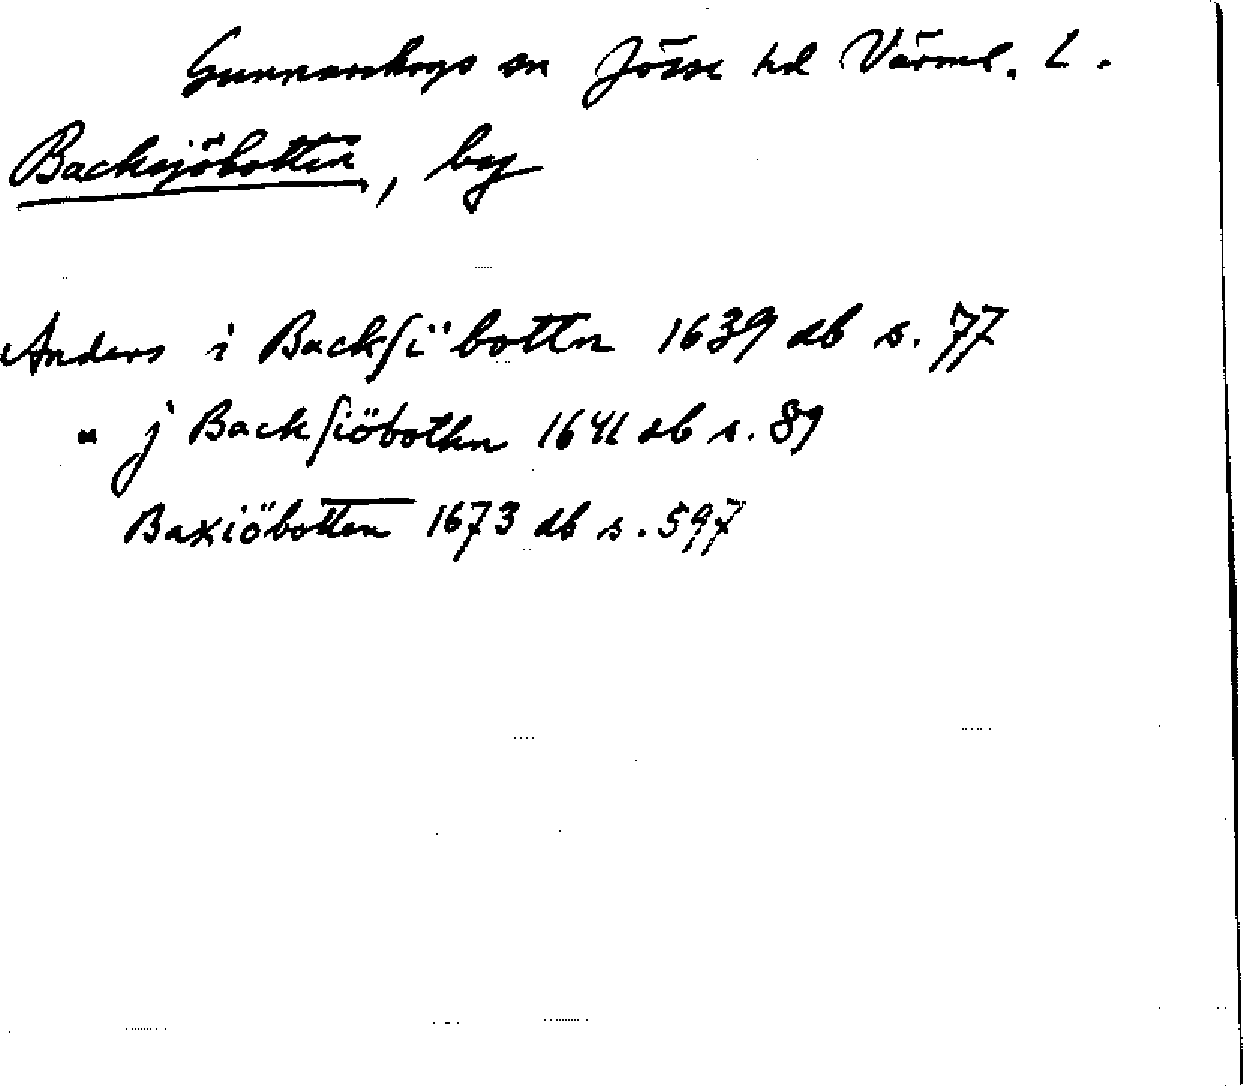 Gunnarskogs sn Jösse hd Värml. L.
Backsjöbotten, by
Anders i Backſiö bottn 1639 db s. 77
" j Backſiöbottn 1641 db s. 89
Baxiöbotten 1673 db s. 597